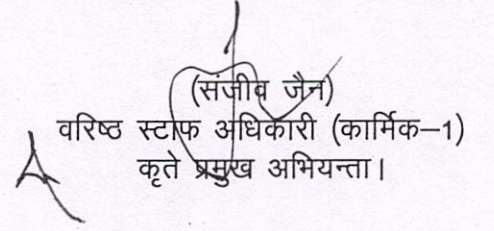 (संजीव जैन)
वरिष्ठ स्टाफ अधिकारी (कार्मिक–1)
कृते प्रमुख अभियन्ता।